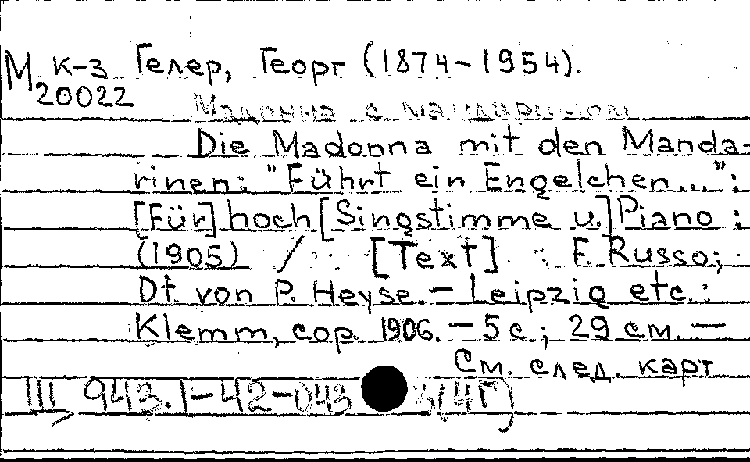 М к-з Гелер, Георг (1874-1954).
20022
Мадонна с мандарином
Die Madonna mit den Manda-
rinen: "Führt ein Engelchen...":
[Für] hoch [Singstimme u.] Piano :
(1905) / [Text] : F. Russo;
Dt. von P. Heyse. — Leipzig etc.:
Klemm, cop. 1906. — 5 с.; 29 см. —
См. след. карт
III, 943.1-42-043